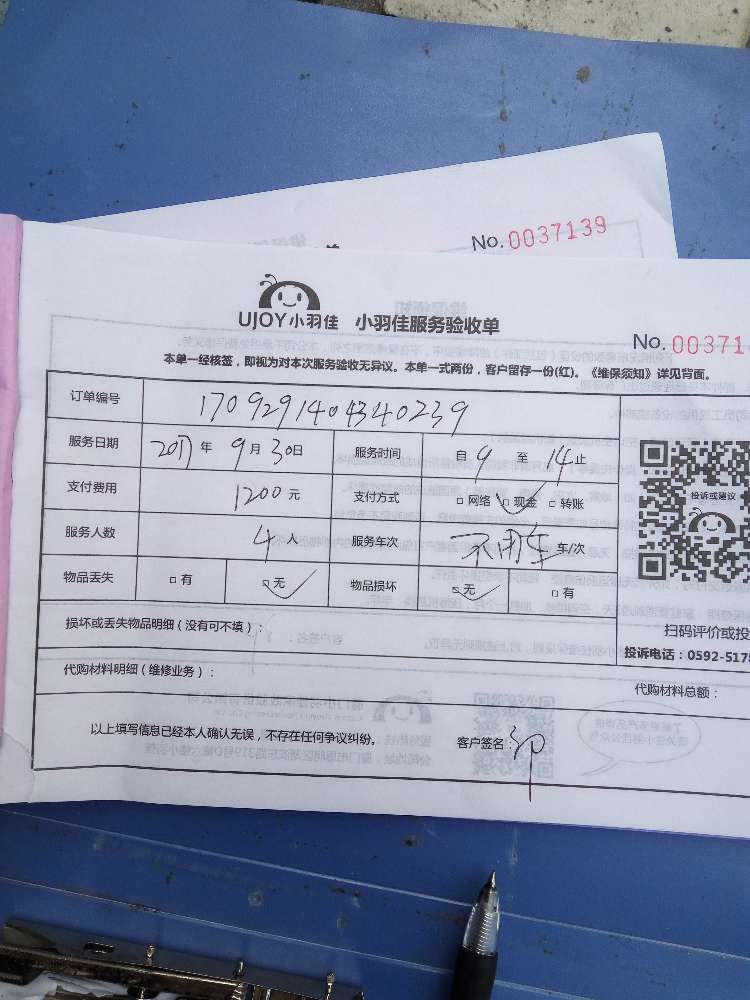 No.0037139
UJOY小羽佳 小羽佳服务验收单
No.00371
本单一经核签，即视为对本次服务验收无异议。本单一式两份，客户留存一份(红)。《维保须知》详见背面。
订单编号 1709291404340239
服务日期 2017年9月30日 服务时间 自9至14止
支付费用 1200元 支付方式 □网络 □现金 □转账
投诉或建议
服务人数 4人 服务车次 不用车 车/次
物品丢失 □有 □无 物品损坏 □无 □有
损坏或丢失物品明细（没有可不填）：
扫码评价或投
投诉电话：0592-517
代购材料明细（维修业务）：
代购材料总额：
以上填写信息已经本人确认无误，不存在任何争议纠纷。 客户签名：